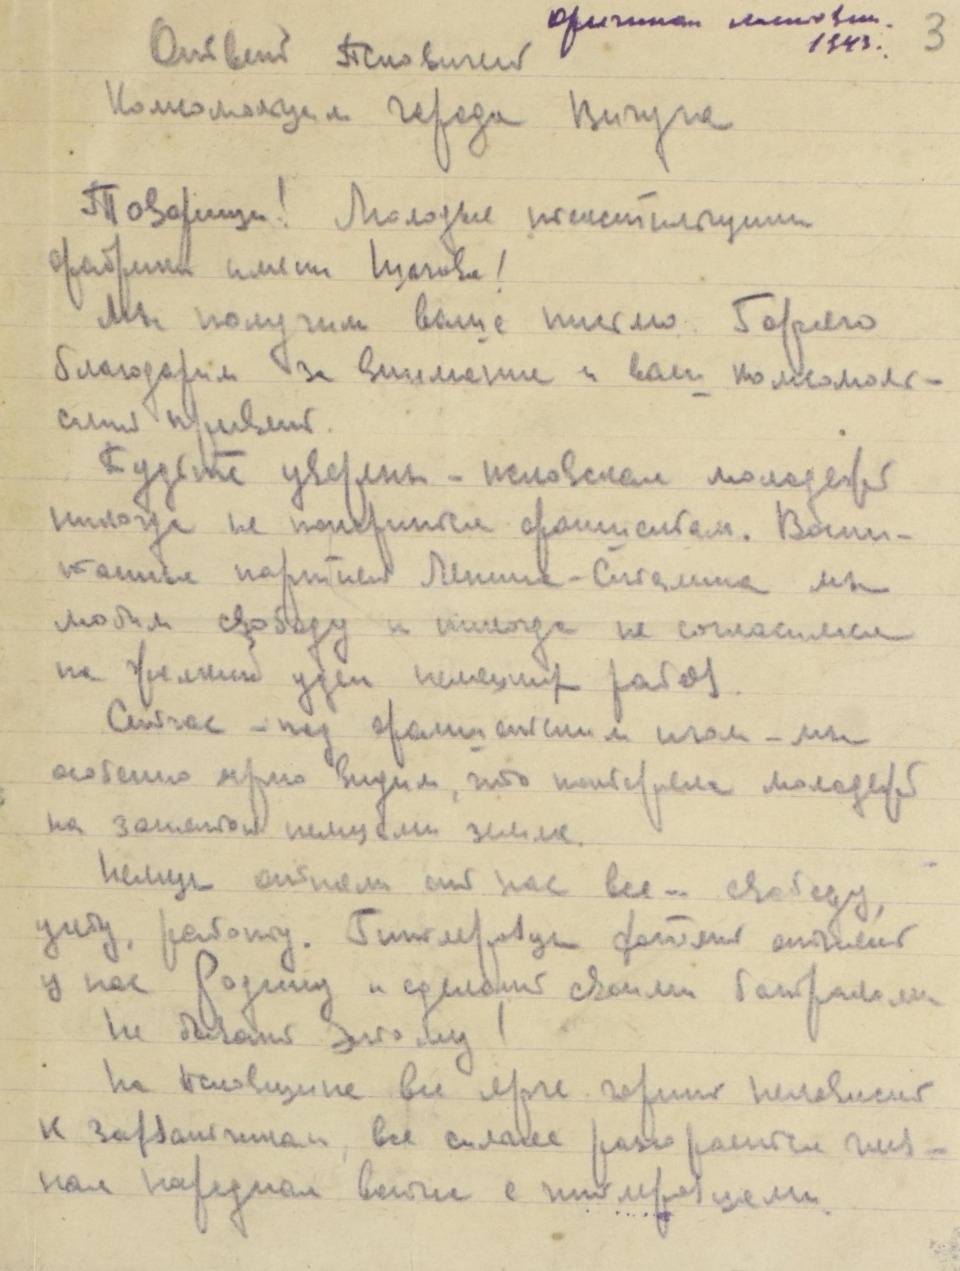 оригинал листовки.
1943.
3
Ответ псковичей
Комсомольцам города Вичуга
Товарищи! Молодые текстильщики
фабрики имени Шагова!
Мы получили ваше письмо. Горячо
благодарим за внимание и ваш комсомоль-
ский привет.
Будьте уверены - псковская молодежь
никогда не покорится фашистам. Воспи-
танные партией Ленина-Сталина мы
любим свободу и никогда не согласимся
на удел немецких рабов.
Сейчас - под фашистским игом - мы
особенно ярко видим, что потеряла молодежь
на занятой немцами земле.
Немцы отняли от нас все - свободу,
учебу, работу. Гитлеровцы хотят отнять
у нас Родину и сделать своими батраками
Не бывать этому!
На Псковщине все ярче горит ненависть
к захватчикам, все сильнее разгорается гнев-
ная народная война с гитлеровцами.